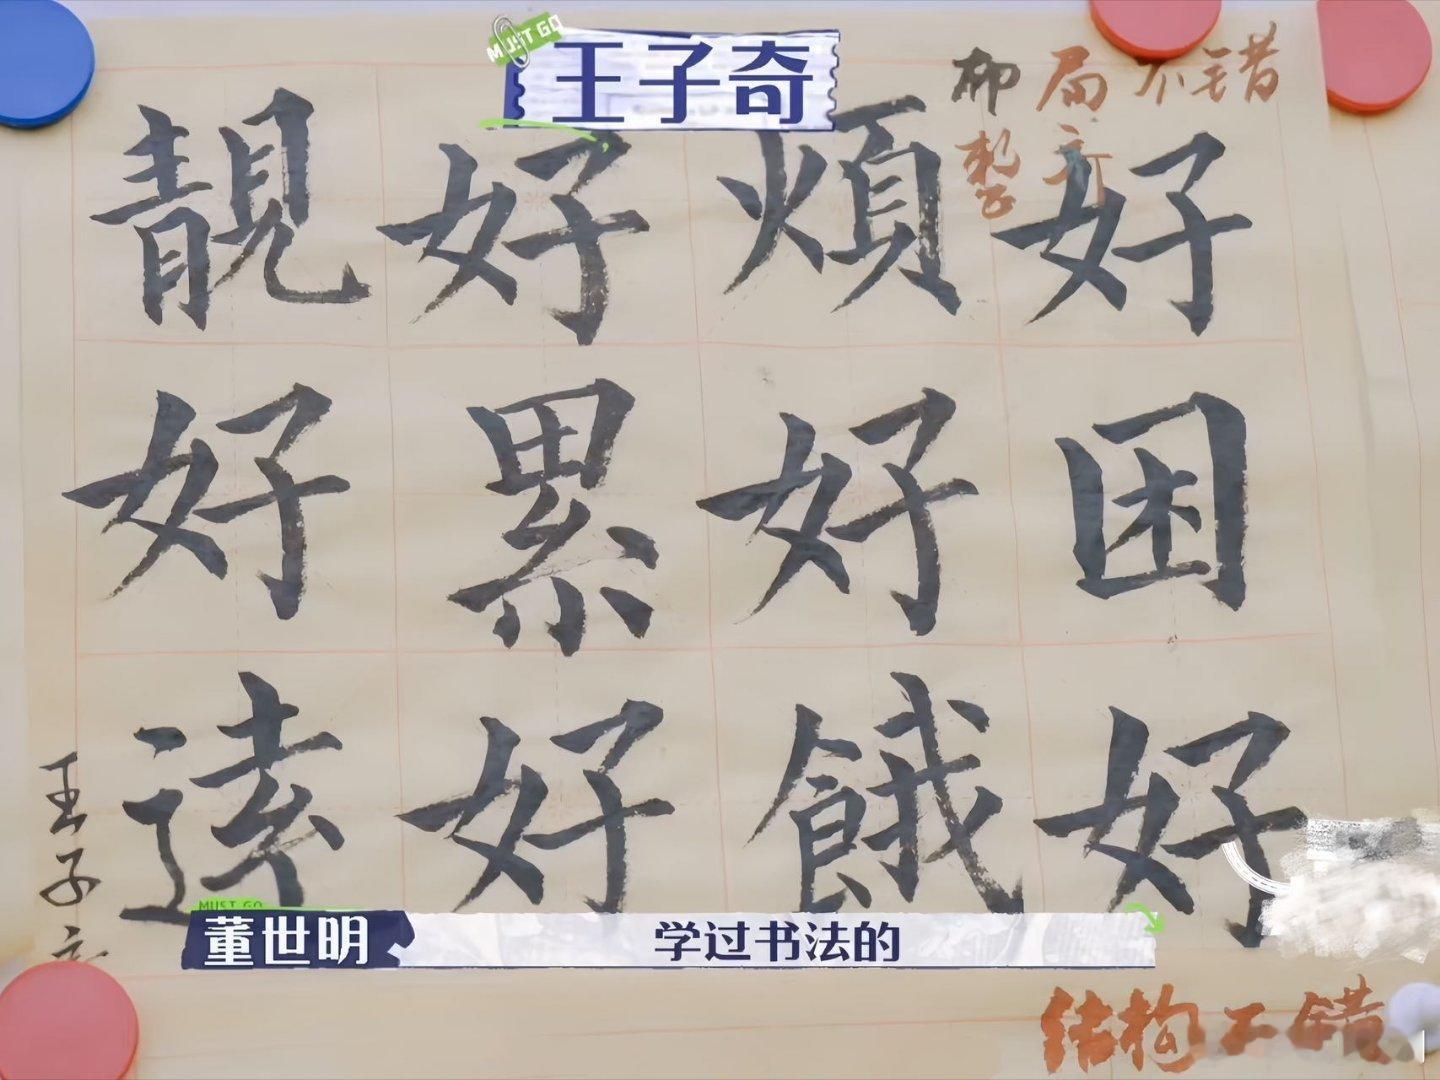 王子奇
布局不错
整齐
好困好
煩好餓
好累好
靚好逺
王子奇
结构不错
MUST GO
董世明
学过书法的
MUST GO